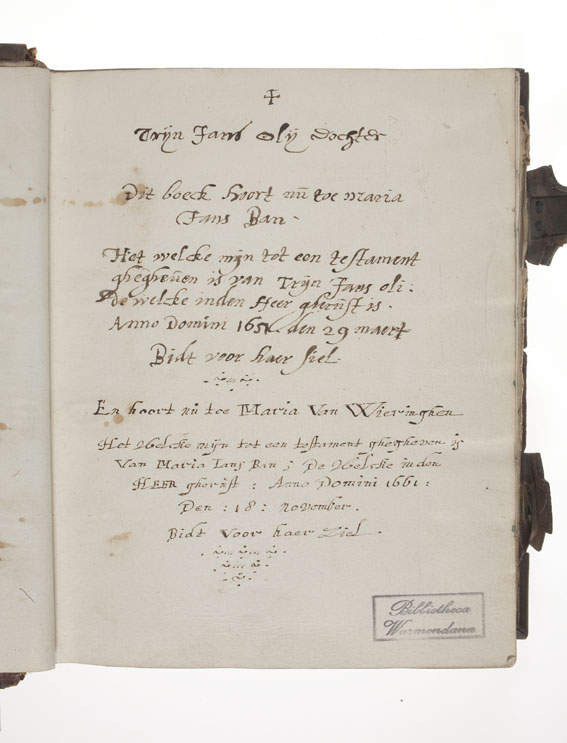 ✝
Trijn Jans Olij dochter
Dit boeck hoort nū toe maria
Jans Ban -
Het welcke mijn tot een testament
ghegheuen is van Trijn Jans oli :
de welcke inden Heer gherūst is .
Anno Domini 1651 den 29 maert
Bidt voor haer siel .
En hoort nū toe Maria Van Wieringhen
Het Welcke mijn tot een testament ghegheven is
Van Maria Ians Ban ; De Welcke in den
HEER gherūst : Anno Domini 1661 :
Den : 18 : november .
Bidt voor haer Ziel .
Bibliotheca
Warmondana